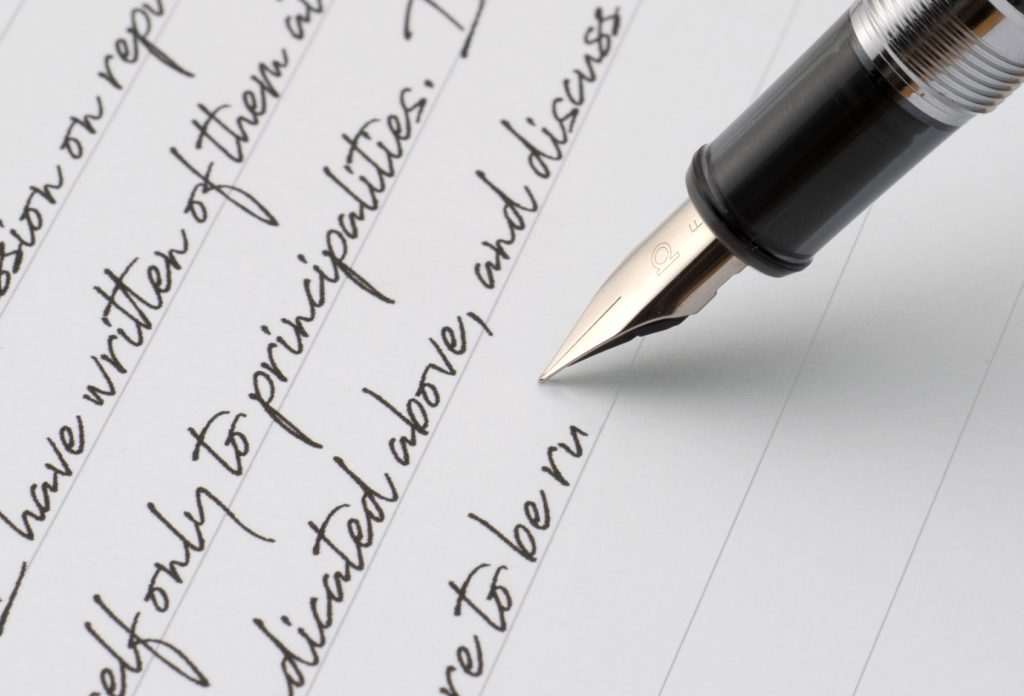 ssion on repu
have written of them
self only to principalities. I
dicated above, and discuss
re to be ru
F